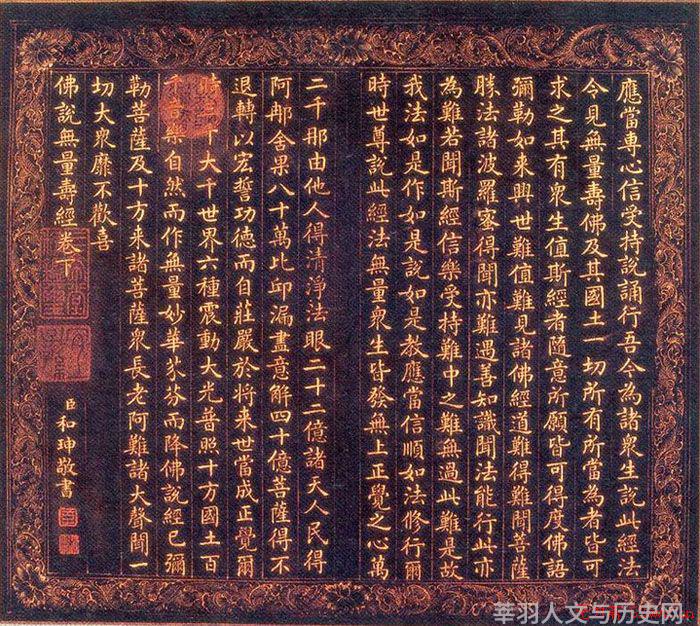 應當專心信受持說誦行吾今為諸衆生說此經法
今見無量壽佛及其國土一切所有所當為者皆可
求之其有衆生值斯經者隨意所願皆可得度佛語
彌勒如來興世難值難見諸佛經道難得難聞菩薩
勝法諸波羅蜜得聞亦難遇善知識聞法能行此亦
為難若聞斯經信樂受持難中之難無過此難是故
我法如是作如是說如是教應當信順如法修行爾
時世尊說此經法無量衆生皆發無上正覺之心萬
二千那由他人得清淨法眼二十二億諸天人民得
阿那舍果八十萬比邱漏盡意解四十億菩薩得不
退轉以宏誓功德而自莊嚴於將来世當成正覺爾
時千大千世界六種震動大光普照十方國土百
千音樂自然而作無量妙華芬而降佛說經已彌
勒菩薩及十方来諸菩薩衆長老阿難諸大聲聞一
切大衆靡不歡喜
佛說無量壽經卷下
臣和珅敬書
莘羽人文与历史网